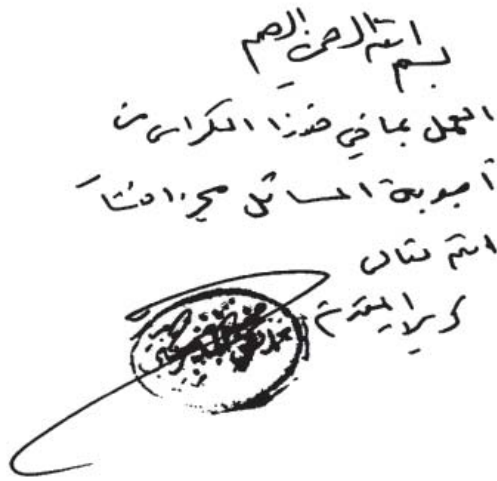 بسم الله الرحمن الرحيم
العمل بما في هذا الكراس من
أجوبة المسائل مجز انشاء
الله تعالى